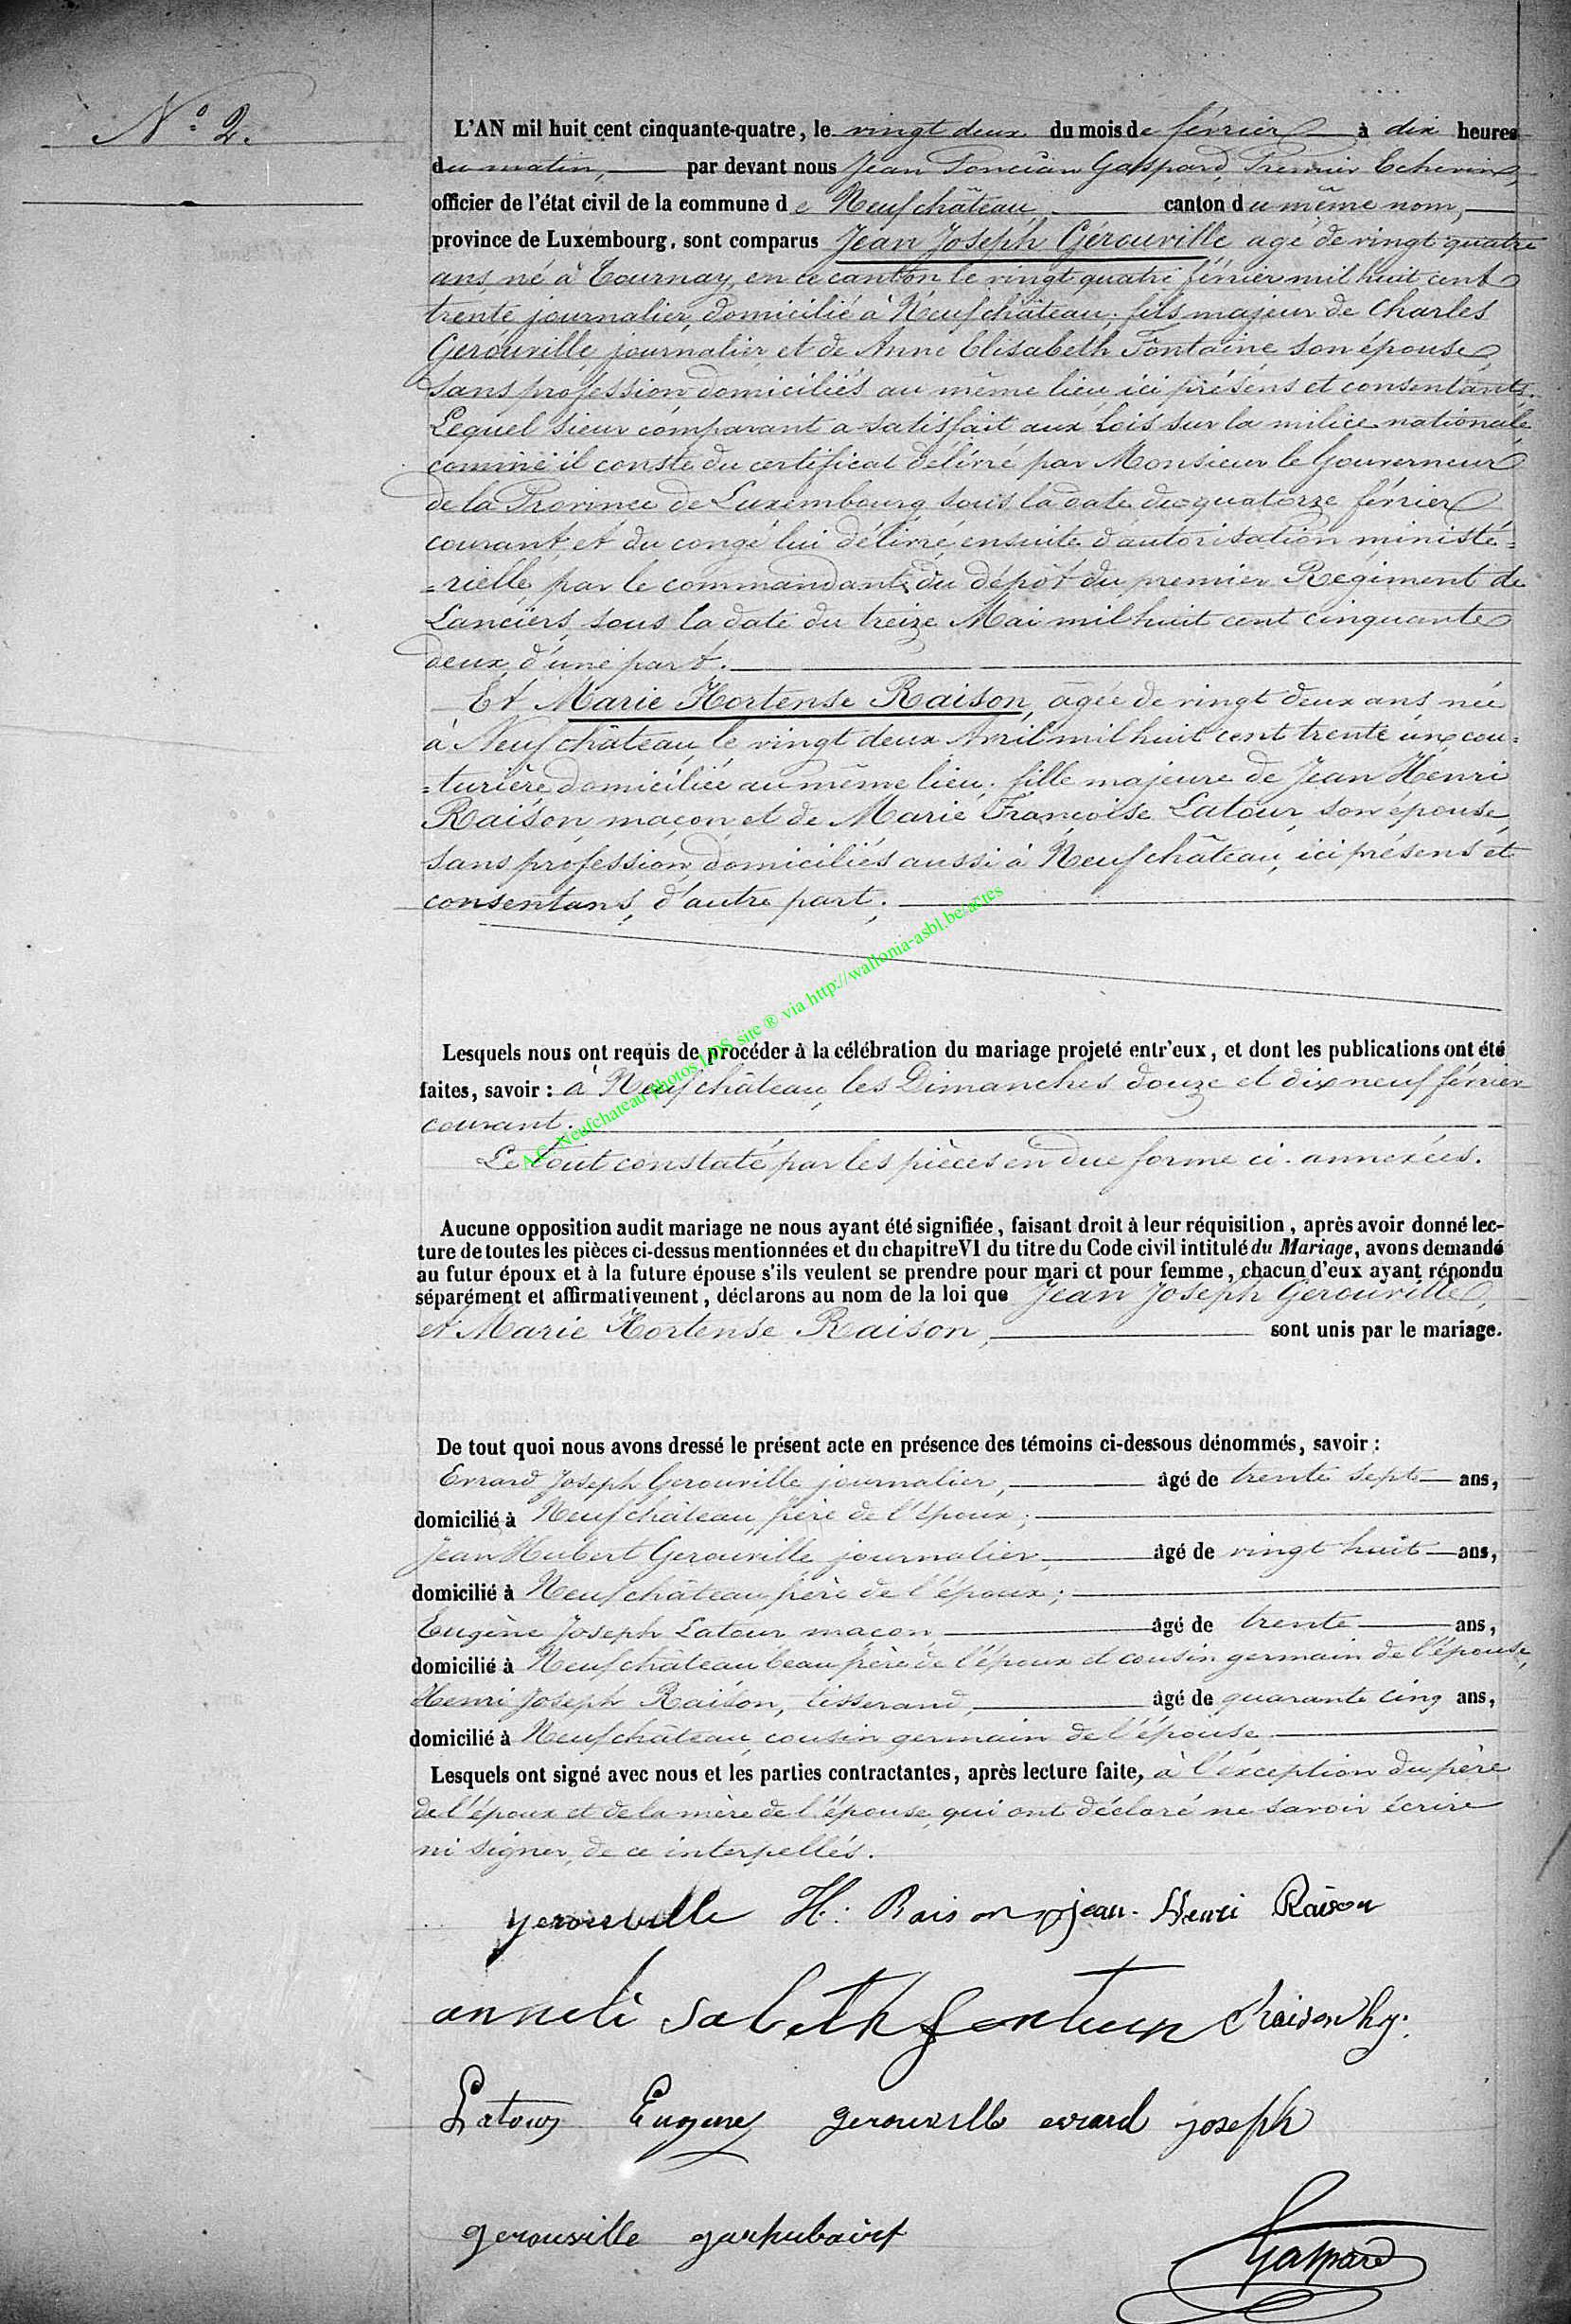 N.º 2.
L'AN mil huit cent cinquante-quatre, le vingt deux du mois de février à dix heures
du matin, par devant nous Jean Poncian Gaspard, Premier Echevin,
officier de l'état civil de la commune de Neufchâteau, canton du même nom,
province de Luxembourg, sont comparus Jean Joseph Gérouville agé de vingt quatre
ans, né à Tournay, en ce canton le vingt quatre février mil huit cent
trente, journalier, domicilié à Neufchâteau, fils majeur de Charles
Gérouville, journalier et de Anne Elisabeth Fontaine son épouse,
sans profession, domiciliés au même lieu, ici présens et consentants.
Lequel sieur comparant a satisfait aux lois sur la milice nationale
comme il conste du certificat délivré par Monsieur le Gouverneur
de la Province de Luxembourg sous la date du quatorze février
courant, et du congé lui délivré, ensuite d'autorisation ministé=
=rielle, par le commandant du dépôt du premier Régiment de
Lanciers, sous la date du treize Mai mil huit cent cinquante
deux, d'une part.
Et Marie Hortense Raison, âgée de vingt deux ans, née
à Neufchâteau, le vingt deux Avril mil huit cent trente un, cou=
=turière domiciliée au même lieu, fille majeure de Jean Henri
Raison, maçon, et de Marie Françoise Latour, son épouse,
sans profession, domiciliés aussi à Neufchâteau, ici présens et
consentans, d'autre part.
Lesquels nous ont requis de procéder à la célébration du mariage projeté entr'eux, et dont les publications ont été
faites, savoir : à Neufchâteau, les Dimanches douze et dix neuf février
courant.
Le tout constaté par les pièces en due forme ci-annexées.
Aucune opposition audit mariage ne nous ayant été signifiée, faisant droit à leur réquisition, après avoir donné lec-
ture de toutes les pièces ci-dessus mentionnées et du chapitre VI du titre du Code civil intitulé du Mariage, avons demandé
au futur époux et à la future épouse s'ils veulent se prendre pour mari et pour femme, chacun d'eux ayant répondu
séparément et affirmativement, déclarons au nom de la loi que Jean Joseph Gérouville,
et Marie Hortense Raison, sont unis par le mariage.
De tout quoi nous avons dressé le présent acte en présence des témoins ci-dessous dénommés, savoir :
Evrard Joseph Gerouville journalier, âgé de trente sept ans,
domicilié à Neufchâteau, frère de l'époux;
Jean Hubert Gerouville journalier, âgé de vingt huit ans,
domicilié à Neufchâteau, frère de l'époux;
Eugène Joseph Latour maçon, âgé de trente ans,
domicilié à Neufchâteau beau frère de l'époux et cousin germain de l'épouse,
Henri Joseph Raison, tisserand, âgé de quarante cinq ans,
domicilié à Neufchâteau, cousin germain de l'épouse.
Lesquels ont signé avec nous et les parties contractantes, après lecture faite, à l'exception du père
de l'époux et de la mère de l'épouse, qui ont déclaré ne savoir écrire
ni signer, de ce interpellés.
gerouville H: Raison jean-Henri Raison
anneli Sabeth fontein Raison hy:
Latour Eugene gerouville evrard joseph
gerouville
Gaspard
A.C. Neufchateau photos LDS site ® via http://wallonia-asbl.be/actes